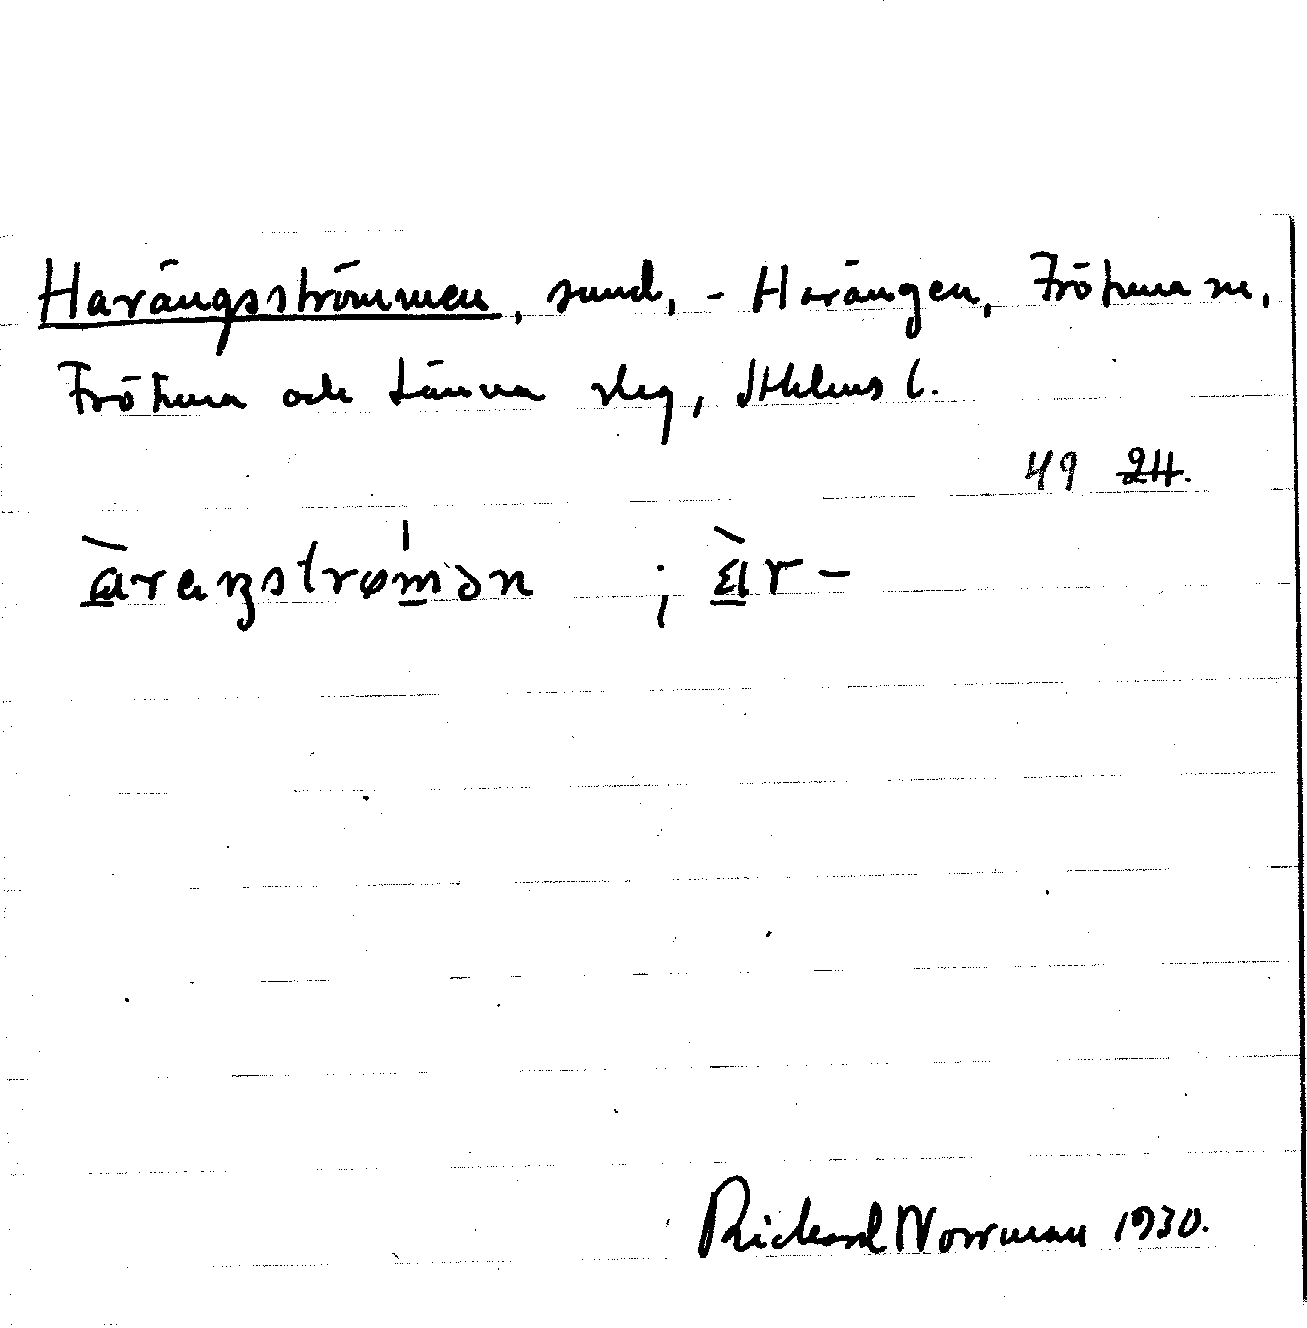 Harängsströmmen, sund, - Harängen, Frötuna sn,
Frötuna och Länna slg, Sthlms l.
49 24.
àreŋstrømən ; àr-
Rickard Norrman 1930.